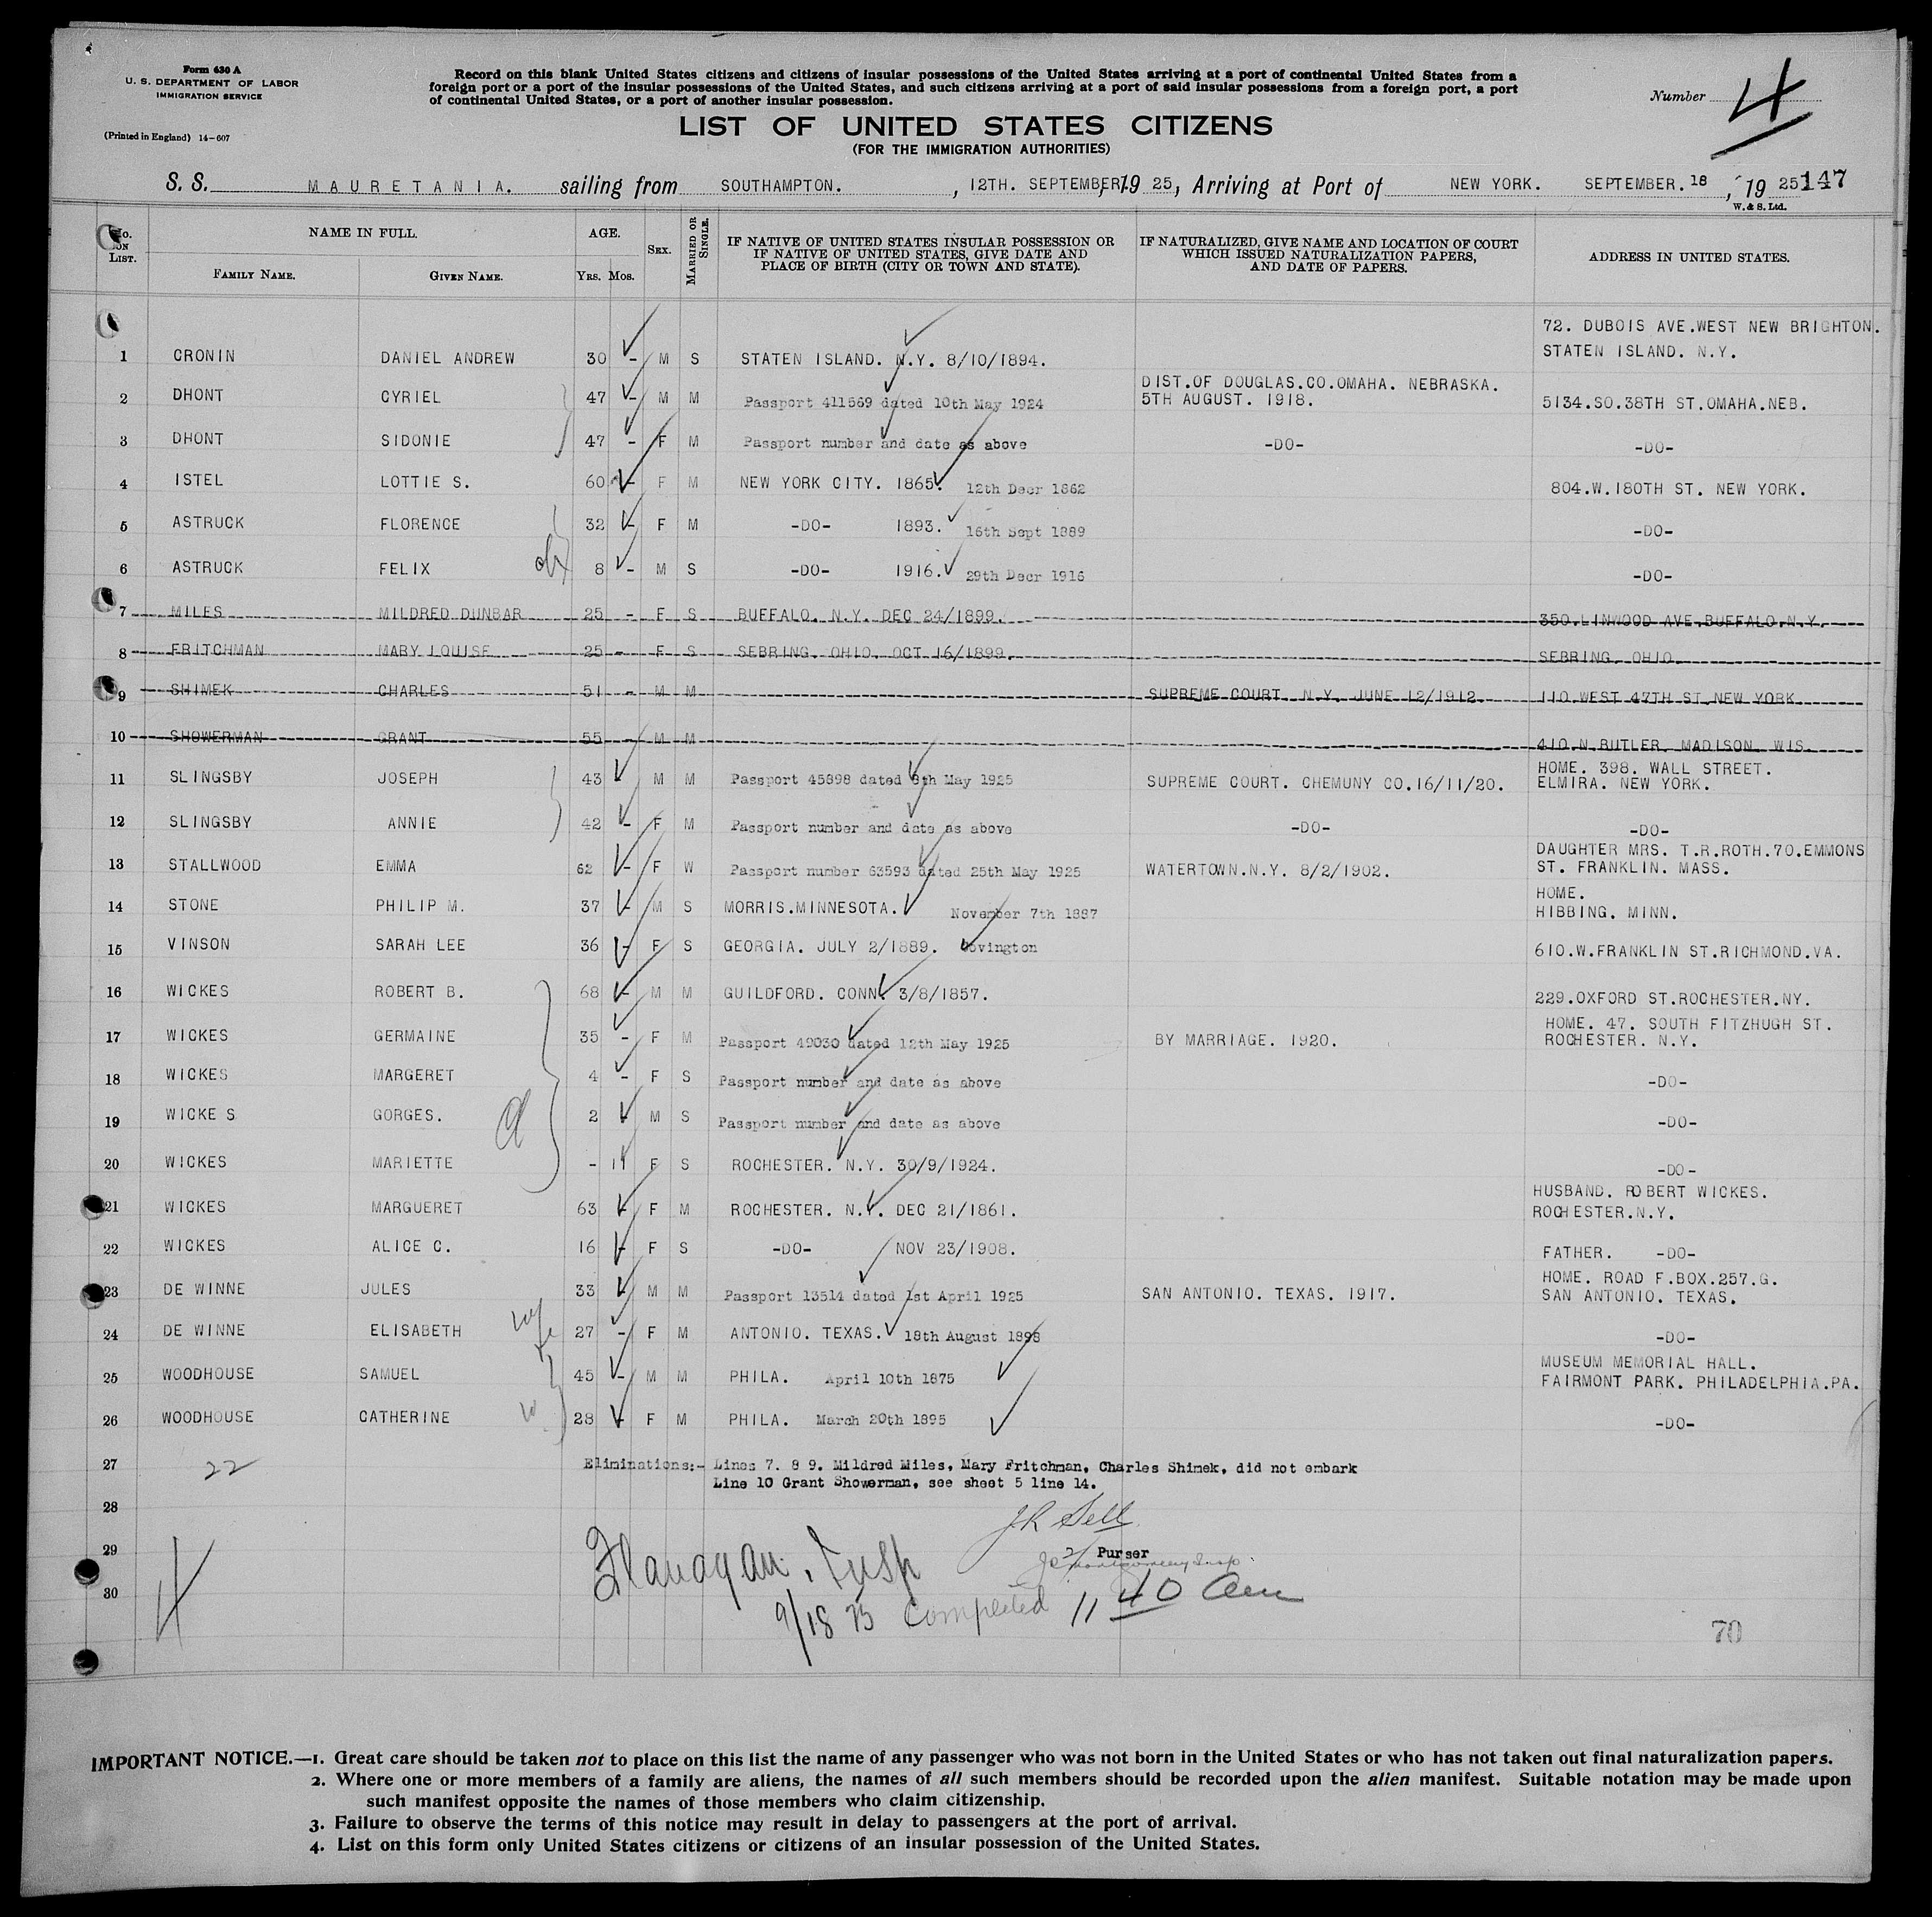 Form 630 A
U. S. DEPARTMENT OF LABOR
IMMIGRATION SERVICE
(Printed in England) 14-607
Record on this blank United States citizens and citizens of insular possessions of the United States arriving at a port of continental United States from a
foreign port or a port of the insular possessions of the United States, and such citizens arriving at a port of said insular possessions from a foreign port, a port
of continental United States, or a port of another insular possession.
Number 4
LIST OF UNITED STATES CITIZENS
(FOR THE IMMIGRATION AUTHORITIES)
S. S. MAURETANIA. sailing from SOUTHAMPTON. , 12TH. SEPTEMBER, 19 25, Arriving at Port of NEW YORK. SEPTEMBER. 18 , 19 25 147
W. & S. Ltd.
No. ON LIST. NAME IN FULL. FAMILY NAME. GIVEN NAME. AGE. YRS. MOS. SEX. MARRIED OR SINGLE. IF NATIVE OF UNITED STATES INSULAR POSSESSION OR IF NATIVE OF UNITED STATES, GIVE DATE AND PLACE OF BIRTH (CITY OR TOWN AND STATE). IF NATURALIZED, GIVE NAME AND LOCATION OF COURT WHICH ISSUED NATURALIZATION PAPERS, AND DATE OF PAPERS. ADDRESS IN UNITED STATES.
72. DUBOIS AVE.WEST NEW BRIGHTON.
1 CRONIN DANIEL ANDREW 30 - M S STATEN ISLAND. N.Y. 8/10/1894. STATEN ISLAND. N.Y.
DIST.OF DOUGLAS.CO.OMAHA. NEBRASKA.
2 DHONT CYRIEL 47 - M M Passport 411569 dated 10th May 1924 5TH AUGUST. 1918. 5134.SO.38TH ST.OMAHA.NEB.
3 DHONT SIDONIE 47 - F M Passport number and date as above -DO- -DO-
4 ISTEL LOTTIE S. 60 - F M NEW YORK CITY. 1865. 12th Decr 1862 804.W.180TH ST. NEW YORK.
5 ASTRUCK FLORENCE 32 - F M -DO- 1893. 16th Sept 1889 -DO-
6 ASTRUCK FELIX 8 - M S -DO- 1916. 29th Decr 1916 -DO-
7 MILES MILDRED DUNBAR 25 - F S BUFFALO. N.Y. DEC 24/1899. 350.LINWOOD AVE.BUFFALO.N.Y.
8 FRITCHMAN MARY LOUISE 25 - F S SEBRING. OHIO. OCT 16/1899. SEBRING. OHIO.
9 SHIMEK CHARLES 51 - M M SUPREME COURT. N.Y. JUNE 12/1912. 110.WEST 47TH ST.NEW YORK.
10 SHOWERMAN GRANT 55 - M M 410.N.BUTLER. MADISON. WIS.
HOME. 398. WALL STREET.
11 SLINGSBY JOSEPH 43 M M Passport 45898 dated 8th May 1925 SUPREME COURT. CHEMUNY CO.16/11/20. ELMIRA. NEW YORK.
12 SLINGSBY ANNIE 42 - F M Passport number and date as above -DO- -DO-
DAUGHTER MRS. T.R.ROTH.70.EMMONS
13 STALLWOOD EMMA 62 - F W Passport number 63593 dated 25th May 1925 WATERTOWN.N.Y. 8/2/1902. ST. FRANKLIN. MASS.
HOME.
14 STONE PHILIP M. 37 - M S MORRIS.MINNESOTA. November 7th 1887 HIBBING. MINN.
15 VINSON SARAH LEE 36 - F S GEORGIA. JULY 2/1889. Covington 610.W.FRANKLIN ST.RICHMOND.VA.
16 WICKES ROBERT B. 68 - M M GUILDFORD. CONN. 3/8/1857. 229.OXFORD ST.ROCHESTER.NY.
HOME. 47. SOUTH FITZHUGH ST.
17 WICKES GERMAINE 35 - F M Passport 49030 dated 12th May 1925 BY MARRIAGE. 1920. ROCHESTER. N.Y.
18 WICKES MARGERET 4 - F S Passport number and date as above -DO-
19 WICKE S GORGES. 2 - M S Passport number and date as above -DO-
20 WICKES MARIETTE - 11 F S ROCHESTER. N.Y. 30/9/1924. -DO-
HUSBAND. ROBERT WICKES.
21 WICKES MARGUERET 63 - F M ROCHESTER. N.Y. DEC 21/1861. ROCHESTER.N.Y.
22 WICKES ALICE C. 16 - F S -DO- NOV 23/1908. FATHER. -DO-
HOME. ROAD F.BOX.257.G.
23 DE WINNE JULES 33 - M M Passport 13514 dated 1st April 1925 SAN ANTONIO. TEXAS. 1917. SAN ANTONIO. TEXAS.
24 DE WINNE ELISABETH wife 27 - F M ANTONIO. TEXAS. 18th August 1898 -DO-
MUSEUM MEMORIAL HALL.
25 WOODHOUSE SAMUEL 45 - M M PHILA. April 10th 1875 FAIRMONT PARK. PHILADELPHIA.PA.
26 WOODHOUSE CATHERINE w 28 - F M PHILA. March 20th 1895 -DO-
27 22 Eliminations:- Lines 7. 8 9. Mildred Miles, Mary Fritchman, Charles Shimek, did not embark
Line 10 Grant Showerman, see sheet 5 line 14.
28
JR Sell
29 Purser
Flanagan, Insp
Montgomery Insp
30
9/18 25 Completed 11 40 am
4
70
IMPORTANT NOTICE.—1. Great care should be taken not to place on this list the name of any passenger who was not born in the United States or who has not taken out final naturalization papers.
2. Where one or more members of a family are aliens, the names of all such members should be recorded upon the alien manifest. Suitable notation may be made upon
such manifest opposite the names of those members who claim citizenship.
3. Failure to observe the terms of this notice may result in delay to passengers at the port of arrival.
4. List on this form only United States citizens or citizens of an insular possession of the United States.